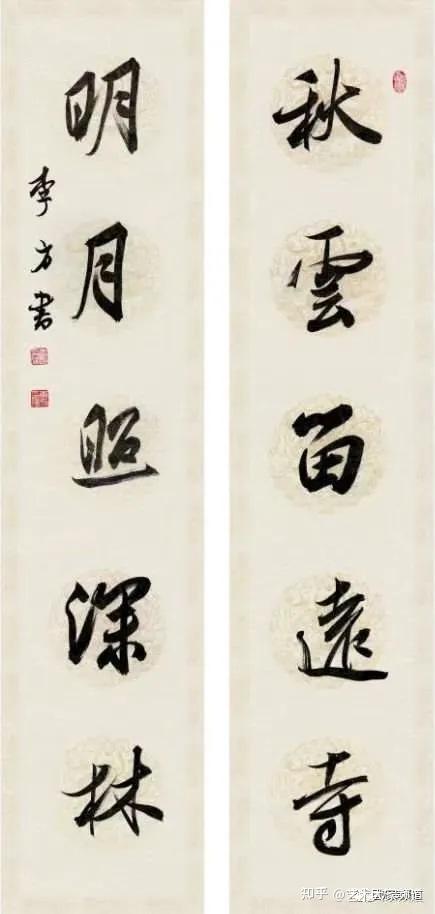 秋雲留遠寺
明月照深林
李方書
知乎 @艺术民荣频道